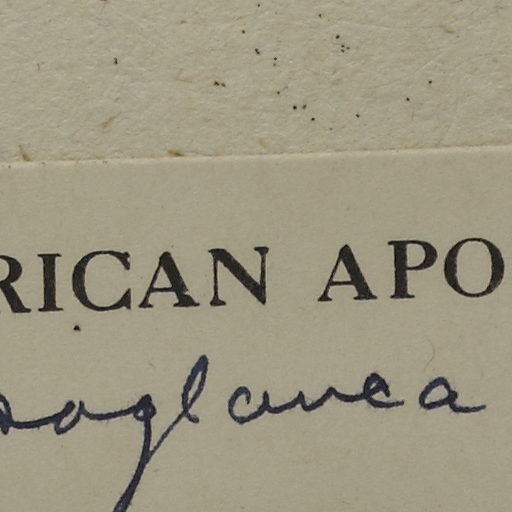 RICAN APO
aoglauca